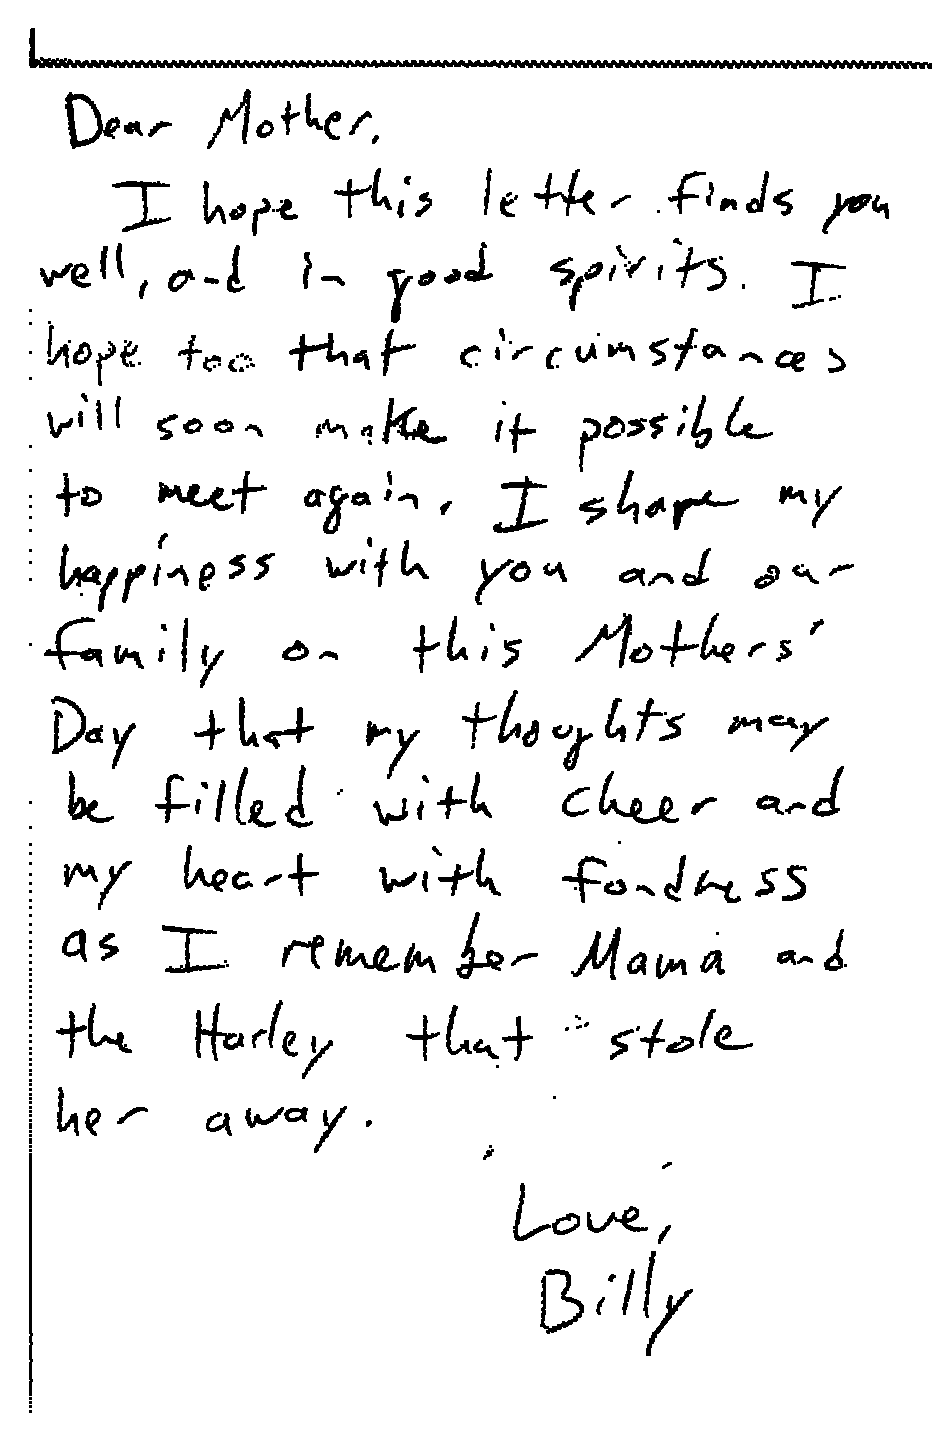 Dear Mother,
I hope this letter finds you
well, and in good spirits. I
hope too that circumstances
will soon make it possible
to meet again. I shape my
happiness with you and our
family on this Mothers'
Day that my thoughts may
be filled with cheer and
my heart with fondness
as I remember Mama and
the Harley that stole
her away.
Love,
Billy